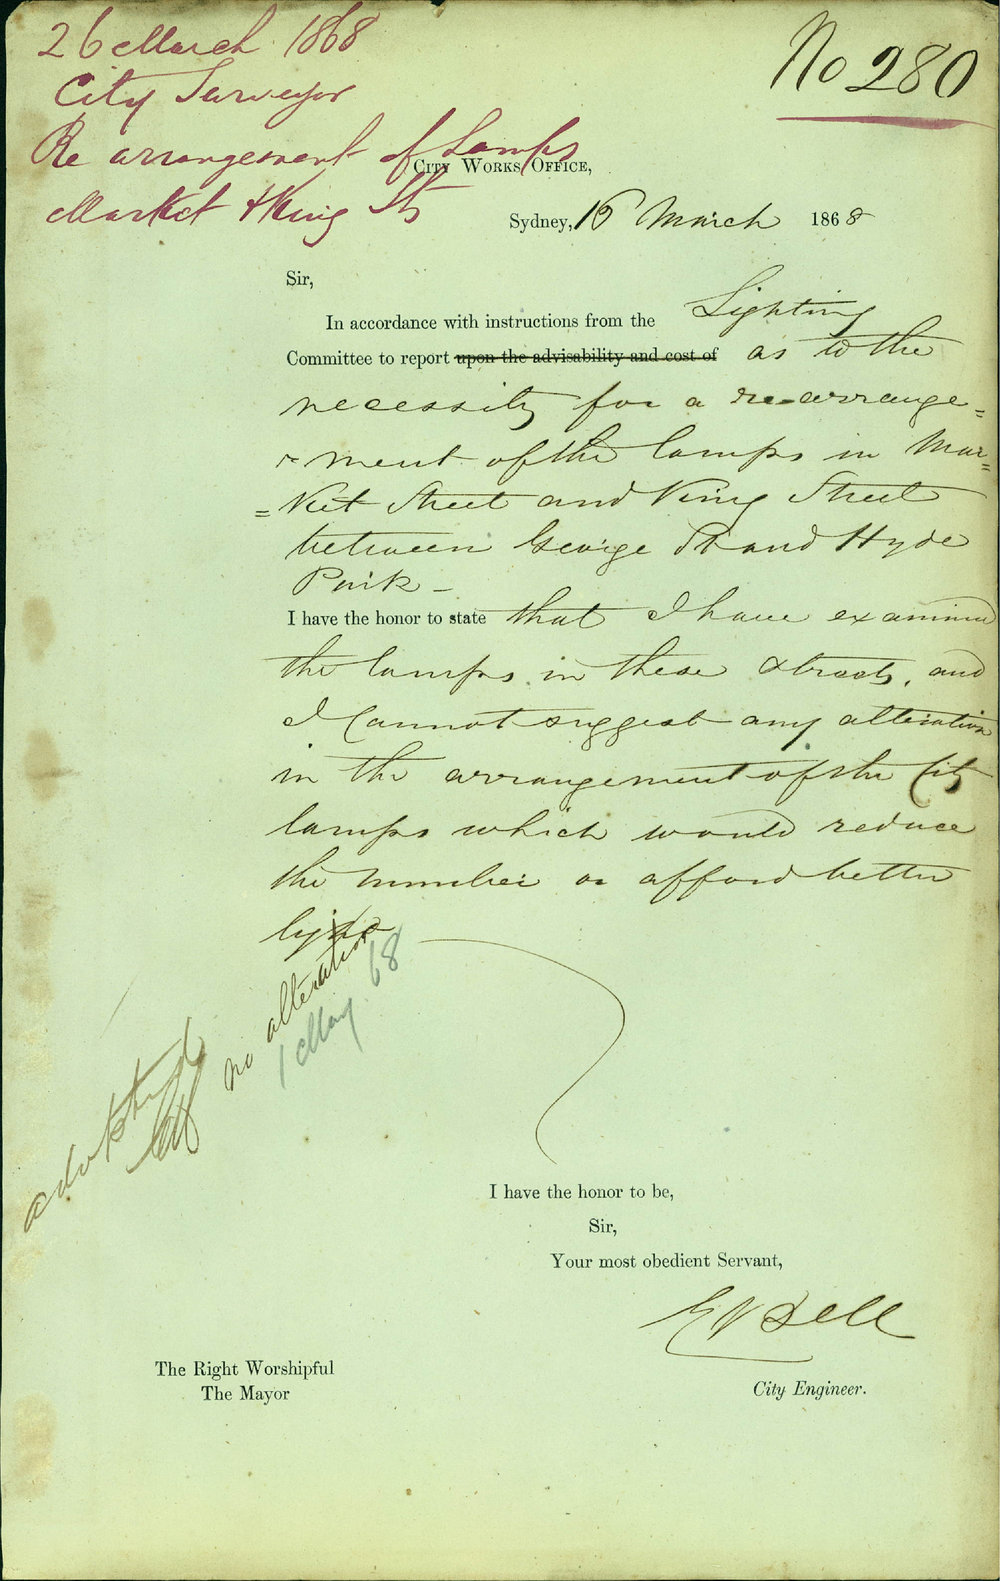 26 March 1868
City Surveyor
Re arrangement of Lamps
Market & King Sts
No 280
City Works Office,
Sydney, 16 March 1868
Sir,
In accordance with instructions from the Lighting
Committee to report upon the advisability and cost of as to the
necessity for a re-arrange=
=ment of the lamps in Mar=
=ket Street and King Street
between George St and Hyde
Park –
I have the honor to state that I have examined
the lamps in these streets, and
I cannot suggest any alteration
in the arrangement of the City
lamps which would reduce
the number or afford better
light
no alteration
1 May 68
adopted
I have the honor to be,
Sir,
Your most obedient Servant,
E Bell
City Engineer.
The Right Worshipful
The Mayor